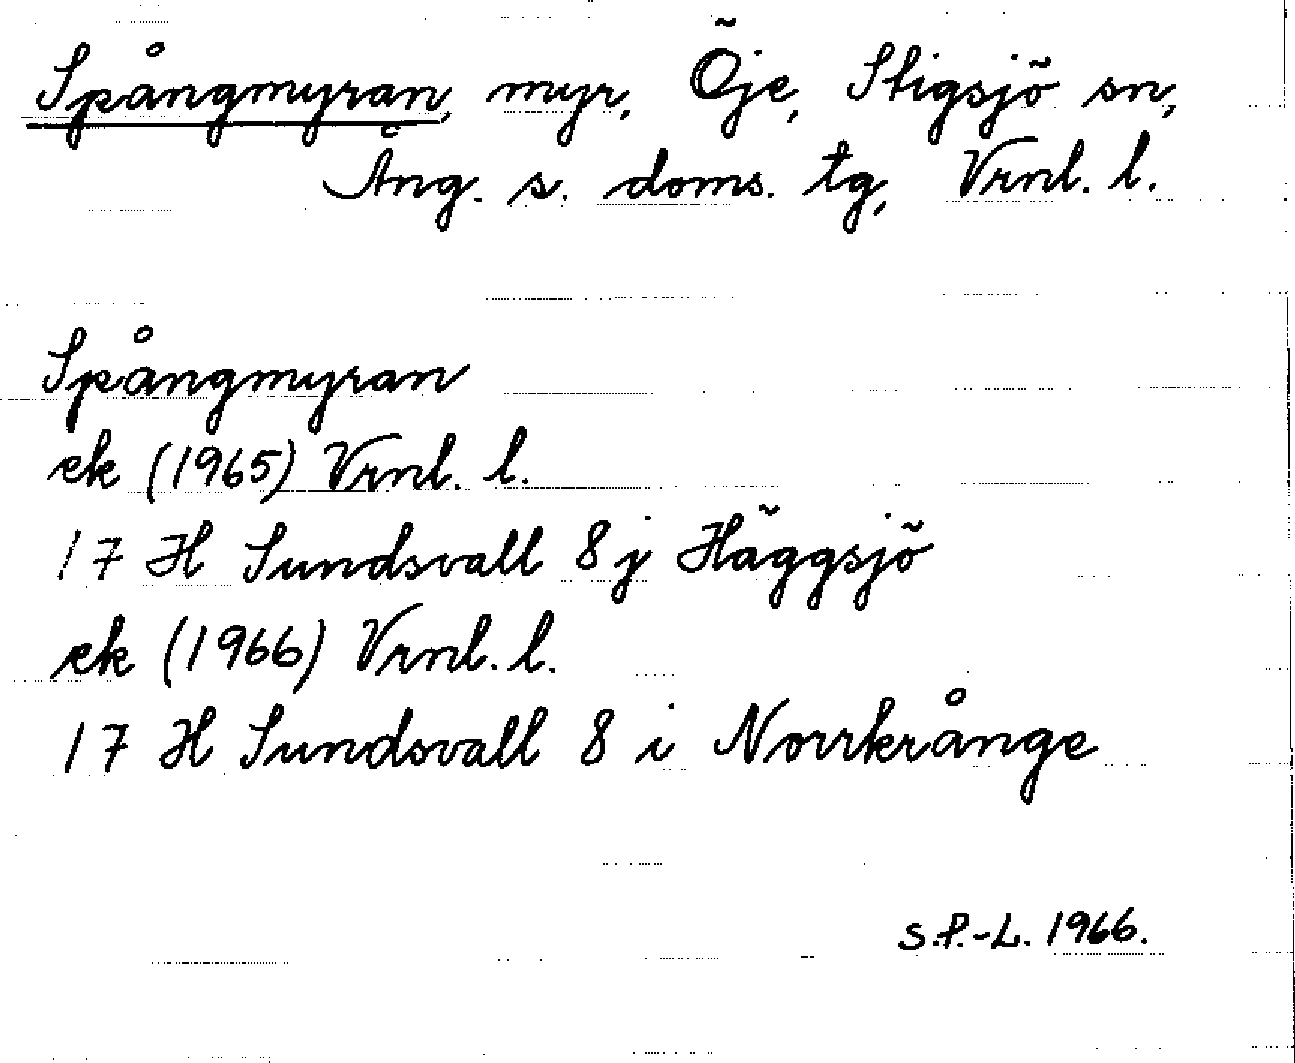 Spångmyran, myr, Öje, Stigsjö sn,
Äng. s. doms. tg, Vrnl. l.
Spångmyran
ek (1965) Vrnl. l.
17 H Sundsvall 8 j Häggsjö
ek (1966) Vrnl. l.
17 H Sundsvall 8 i Norrkrånge
S.P.-L. 1966.